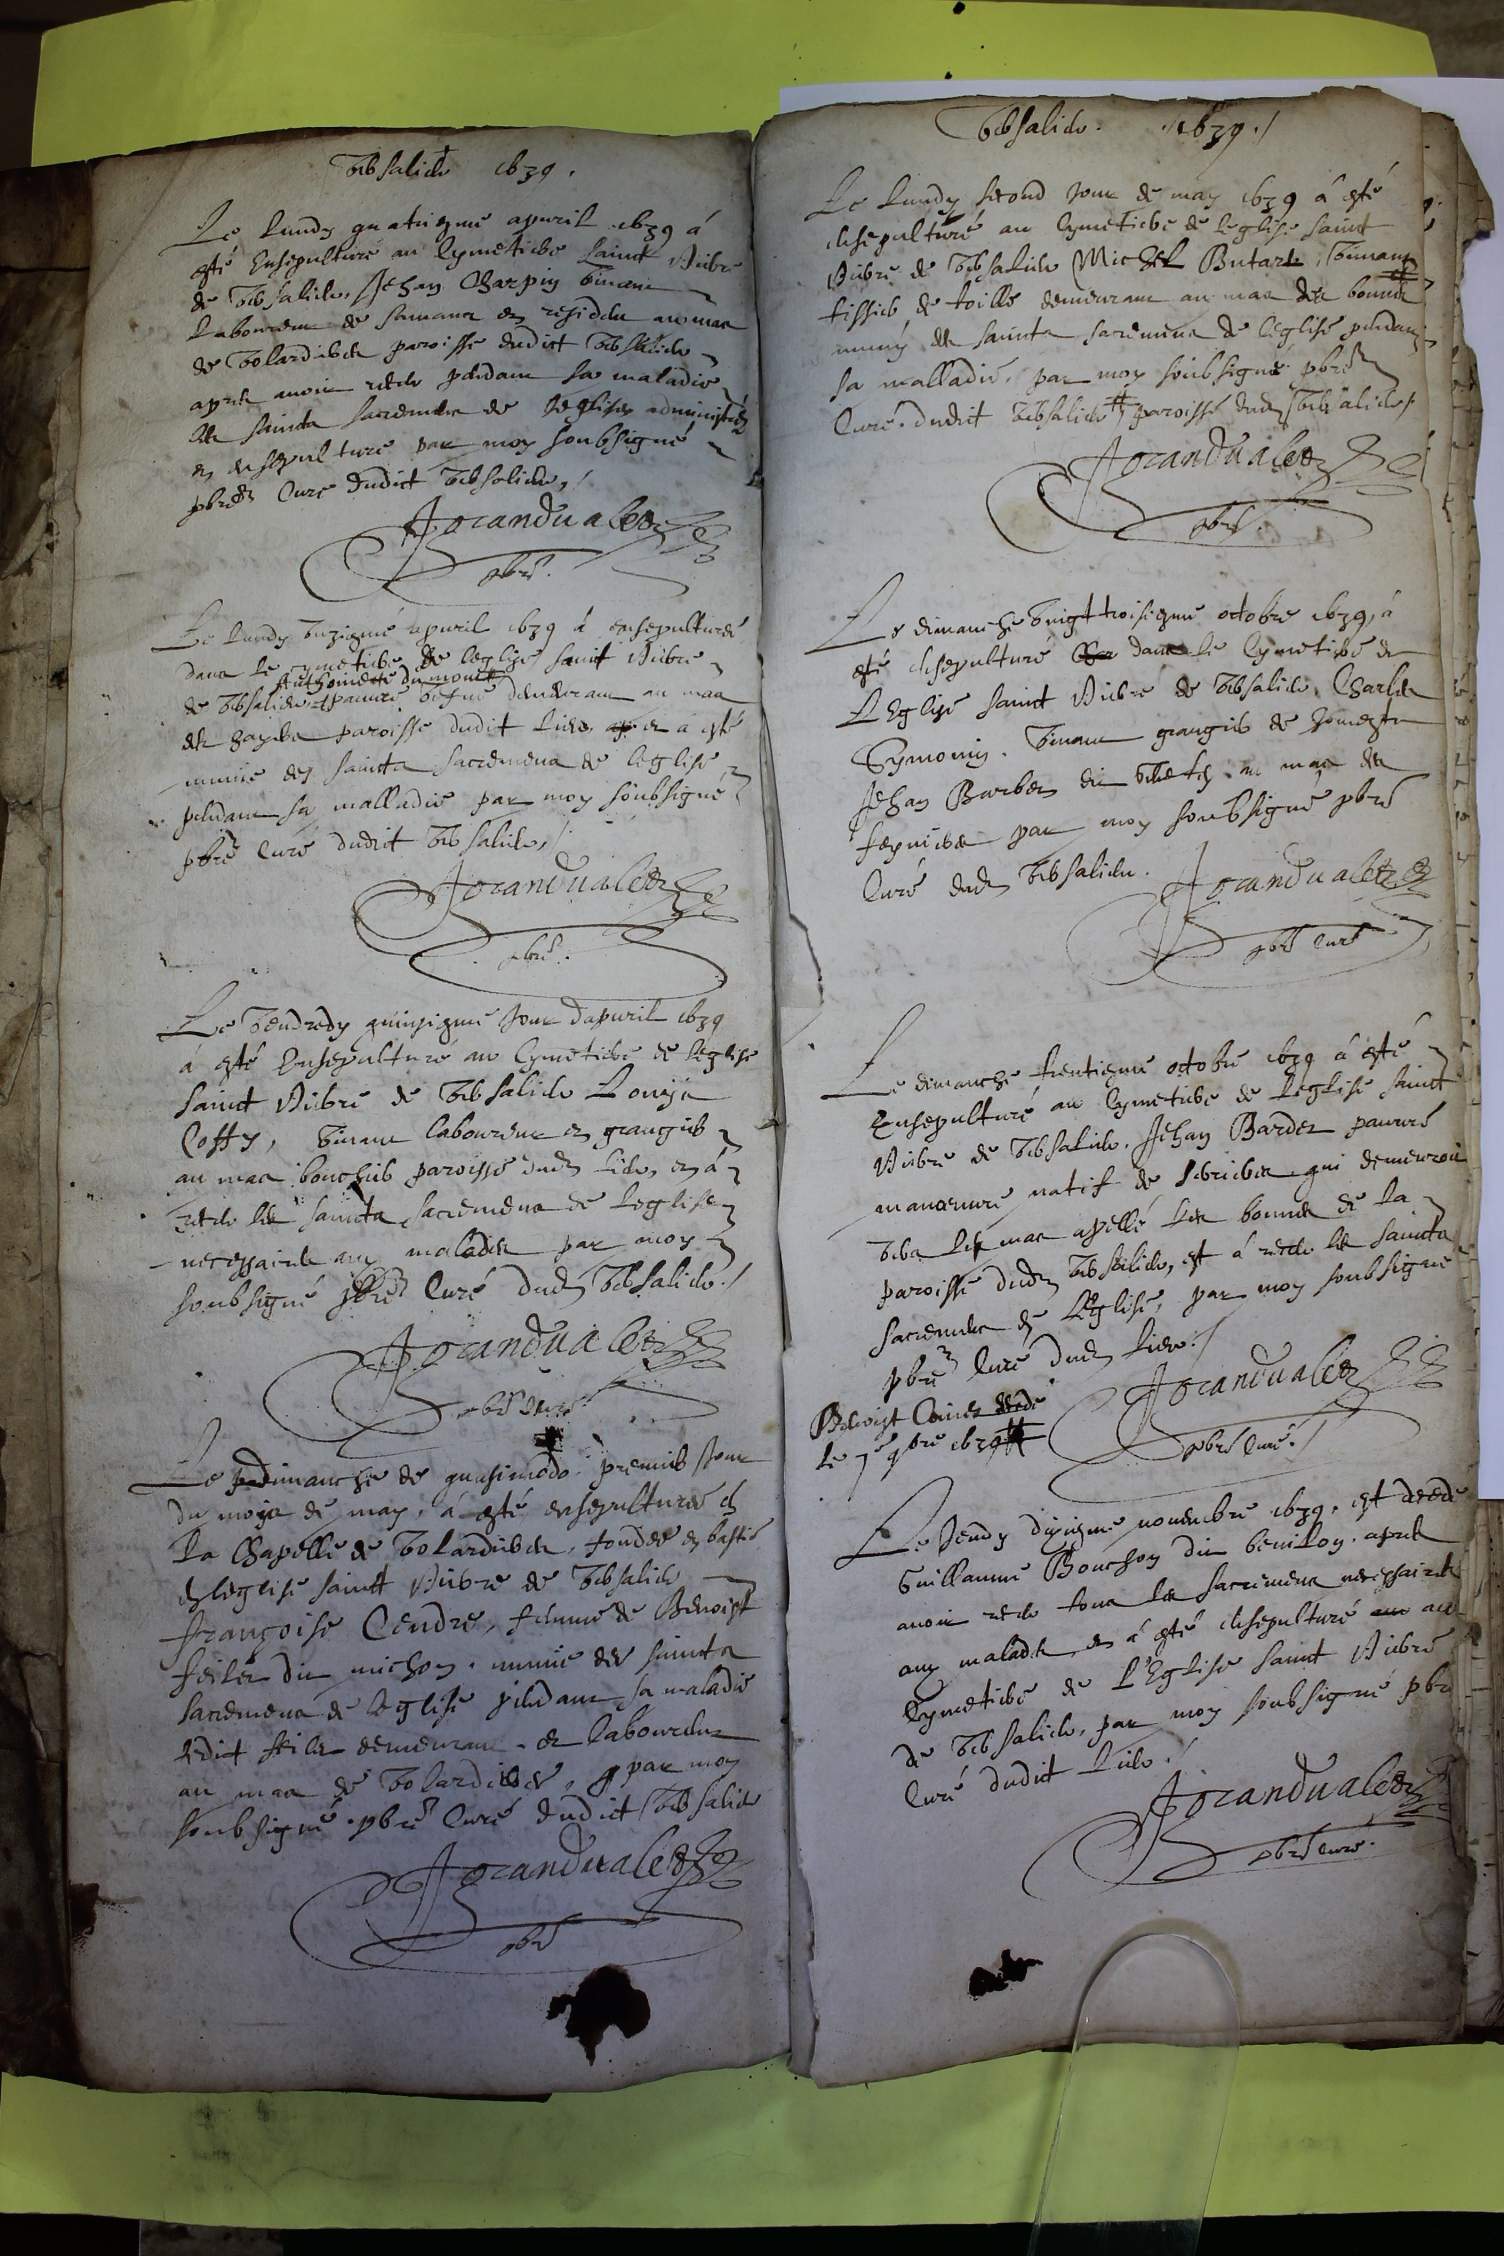 Versalieu 1639.
Le Lundy quatriesme apuril 1639 á
esté Ensepulturé au Cymetiere Sainct Aubre
de Versalieu, Jehan Charpin viuant
Laboureur de
de Volardiere paroisse dudict Versalieu
apres auoir receu pendant sa maladie
les saincts sacremens de leglise administrés
et ensepulturé par moy soubsigné
pbre Curé dudict Versalieu,
Jocandualet
pbre.
Le Lundy vnziesme apuril 1639 á ensepulturée
dans le cymetiere de leglise sainct Aubre
Anthoinette du mont
de Versalieu pauure vefue demeurant au mas
des paroisse dudit Lieu, et a esté
munie des saincts sacremens de leglise
pendant sa malladie par moy soubsigné
pbre Curé dudict Versalieu,
Jocandualet
pbre.
Le Vendredy quinziesme Jour dapuril 1639
á esté Ensepulturé au Cymetiere de leglise
sainct Aubre de Versalieu Louys
Coffy, viuant laboureur et grangier
au mas bouchier paroisse dudit Lieu, et á
receu les saincts sacremens de Leglise
necessaires aux malades par moy
soubsigné pbre Curé dudit Versalieu.
Jocandualet
pbre Curé.
Le dimanche de quasimodo. premier Jour
du moys de may, á esté ensepulturée en
la Chapelle de Volardiere, fondée et bastie
en leglise sainct Aubre de Versalieu
françoise Cendre, femme de Benoist
feiler dit michon. munie des saincts
sacremens de leglise pendant sa maladie
ledict feiler demeurant et laboureur
au mas de Volardiere, par moy
soubsigné pbre Curé dudict Versalieu
Jocandualet
pbre
Versalieu. 1639.
Le Lundy second Jour de may 1639 á esté
ensepulturé au Cymetiere de leglise sainct
Aubre de Versalieu Michel Butart, viuant
tissier de toille demeurant au mas des bonnes
muny des saincts sacremens de leglise pendant
sa malladie, par moy soubsigné pbre
Curé dudit Versalieu paroisse dudit Versalieu.
Jocandualet
pbre.
Le dimanche vingt troisiesme octobre 1639, á
esté ensepulturé dans le Cymetiere de
LEglise sainct Aubre de Versalieu, Charles
Symonin. viuant grangier de
Jehan Barbet dit au mas des
par moy soubsigné pbre
Curé dudit Versalieu.
Jocandualet
pbre Curé
Le dimanche trentiesme octobre 1639 á esté
Ensepulturé au Cymetiere de Leglise sainct
Aubre de Versalieu. Jehan Bardet pauure
manoeuure natif de qui demeuroit
vers le mas apellé les bonnes de la
paroisse dudit Versalieu, et á receu les saincts
sacremens de LEglise, par moy soubsigné
pbre Curé dudit Lieu.
Jocandualet
pbre Curé.
Benoist decedé
le 7e 9bre 1639
Le Jeudy dixiesme nouembre 1639, est decedé
Guillaume Bouchon dit benillon. apres
auoir receu tous les sacremens necessaires
aux malades et á esté ensepulturé au
Cymetiere de LEglise sainct Aubre
de Versalieu, par moy soubsigné pbre
Curé dudict Lieu.
Jocandualet
pbre Curé.